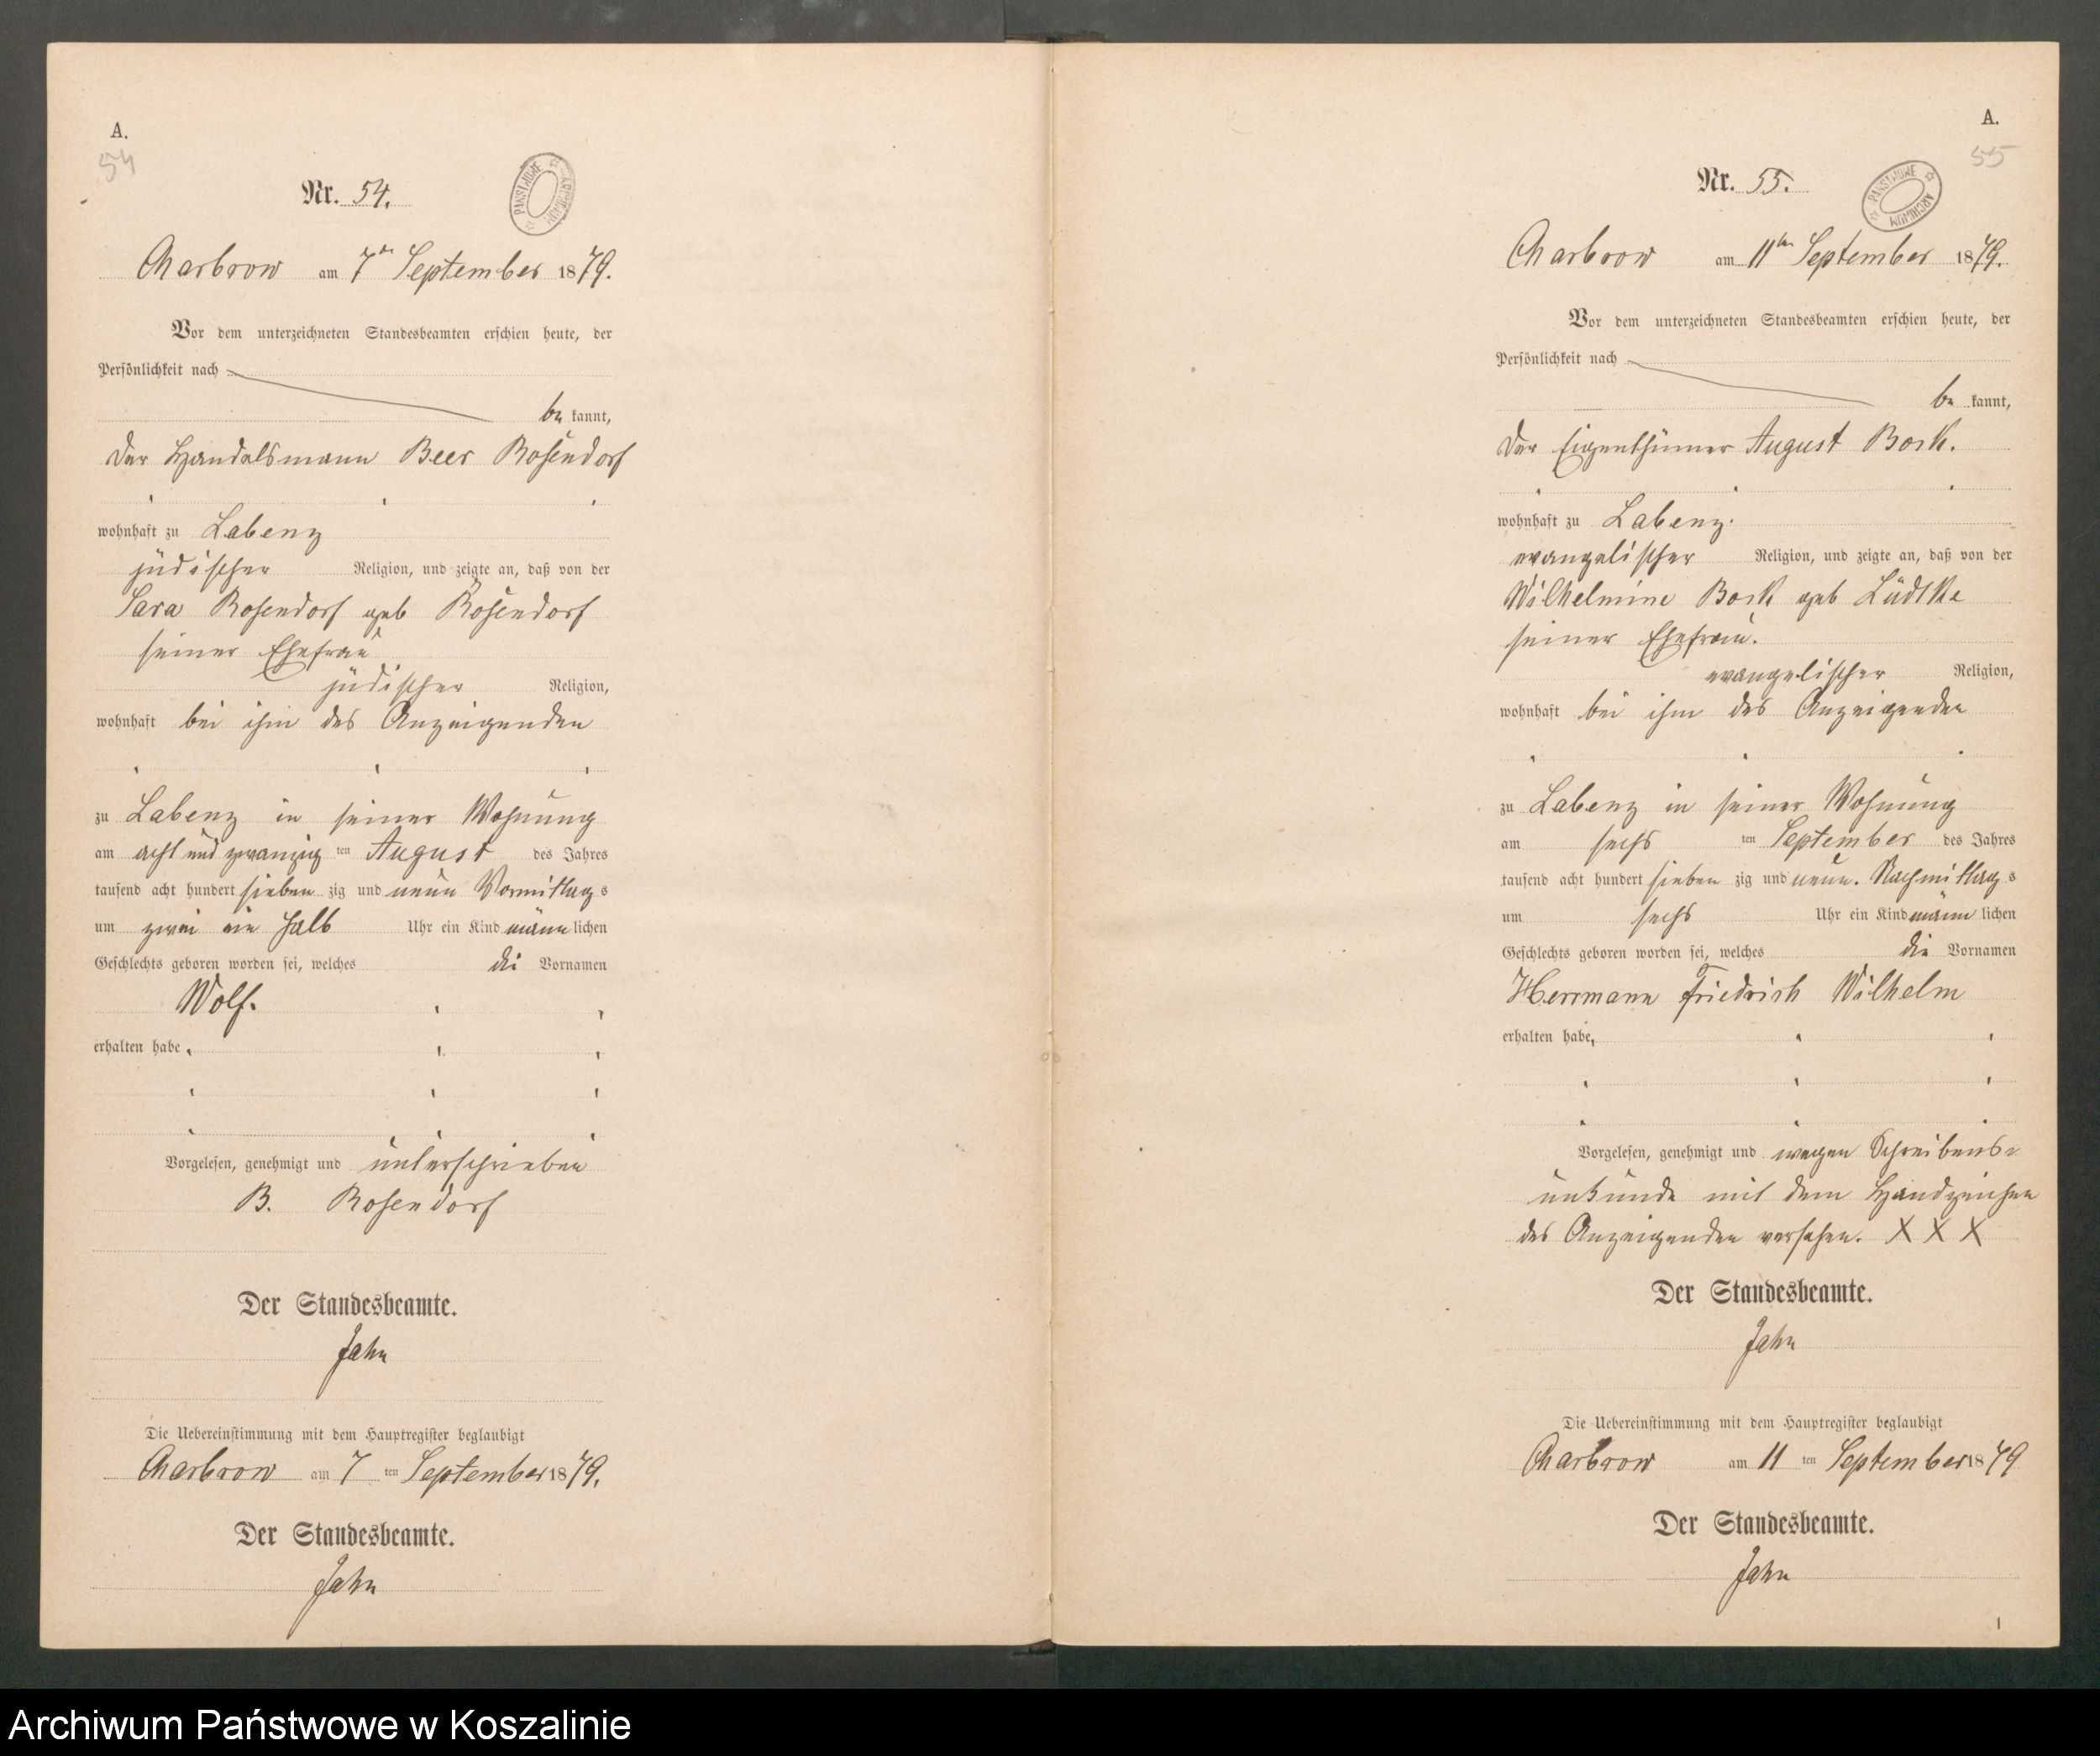 A.
54
Nr. 54.
PAŃSTWOWE ARCHIWUM
Charbrow am 7ten September 1879.
Vor dem unterzeichneten Standesbeamten erschien heute, der
Persönlichkeit nach
be kannt,
der Handelsmann Beer Rosendorf
wohnhaft zu Labenz
jüdischer Religion, und zeigte an, daß von der
Sara Rosendorf geb Rosendorf
seiner Ehefrau
jüdischer Religion,
wohnhaft bei ihm des Anzeigenden
zu Labenz in seiner Wohnung
am acht und zwanzig ten August des Jahres
tausend acht hundert sieben zig und neun Vormittag s
um zwei ein halb Uhr ein Kind männ lichen
Geschlechts geboren worden sei, welches die Vornamen
Wolf.
erhalten habe
Vorgelesen, genehmigt und unterschrieben
B. Rosendorf
Der Standesbeamte.
Jahn
Die Uebereinstimmung mit dem Hauptregister beglaubigt
Charbrow am 7 ten September 1879.
Der Standesbeamte.
Jahn
A.
55
Nr. 55.
PAŃSTWOWE ARCHIWUM
Charbrow am 11ten September 1879.
Vor dem unterzeichneten Standesbeamten erschien heute, der
Persönlichkeit nach
be kannt,
der Eigenthümer August Bork.
wohnhaft zu Labenz.
evangelischer Religion, und zeigte an, daß von der
Wilhelmine Bork geb Lüdtke
seiner Ehefrau.
evangelischer Religion,
wohnhaft bei ihm des Anzeigenden
zu Labenz in seiner Wohnung
am sechs ten September des Jahres
tausend acht hundert sieben zig und neun. Nachmittag s
um sechs Uhr ein Kind männ lichen
Geschlechts geboren worden sei, welches die Vornamen
Herrmann Friedrich Wilhelm
erhalten habe,
Vorgelesen, genehmigt und wegen Schreibens-
unkunde mit dem Handzeichen
des Anzeigenden versehen. X X X
Der Standesbeamte.
Jahn
Die Uebereinstimmung mit dem Hauptregister beglaubigt
Charbrow am 11 ten September 1879
Der Standesbeamte.
Jahn
1
Archiwum Państwowe w Koszalinie